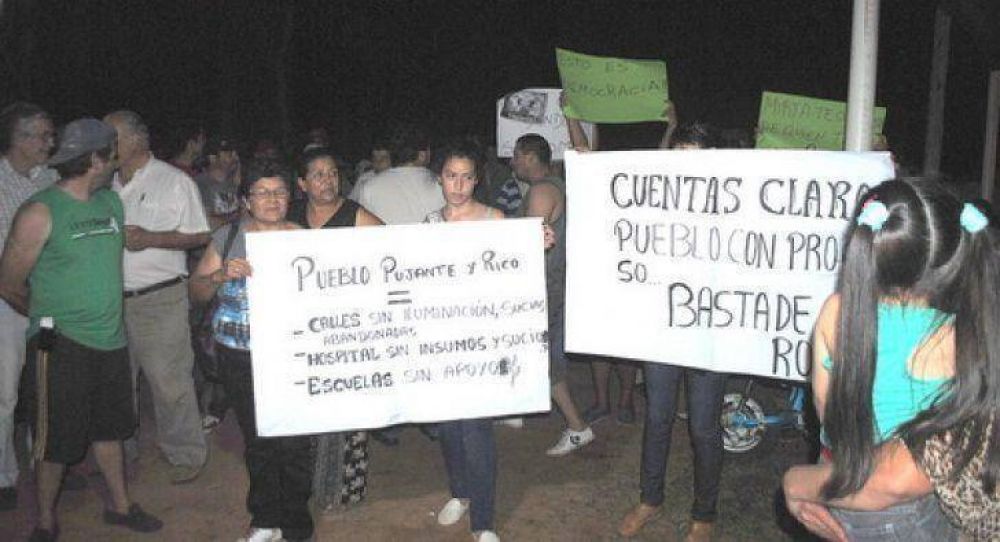 ESTO ES
DEMOCRACIA
PUEBLO PUJANTE Y RICO
=
- CALLES SIN ILUMINACIÓN, SUCIAS
ABANDONADAS
- HOSPITAL SIN INSUMOS Y SUCIO
- ESCUELAS SIN APOYO
CUENTAS CLARA
PUEBLO CON PRO
SO...
BASTA DE
RO